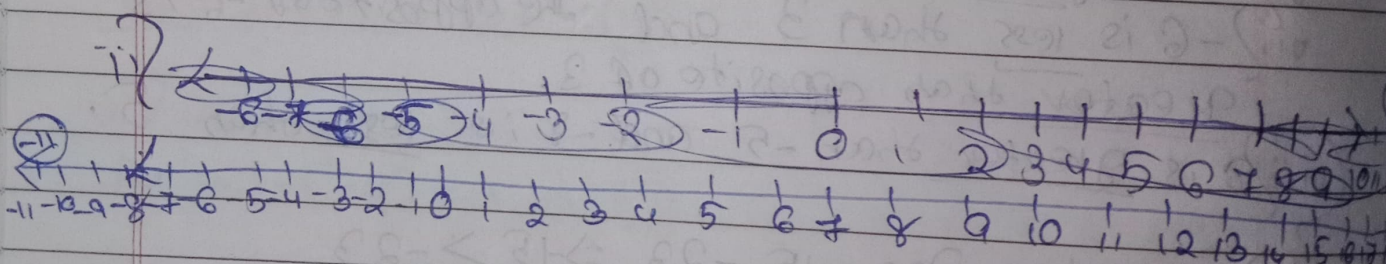 ii)
-8 -7 -6 -5 -4 -3 -2 -1 0 1 2 3 4 5 6 7 8 9 10 11
-11
-11 -10 -9 -8 -7 -6 -5 -4 -3 -2 -1 0 1 2 3 4 5 6 7 8 9 10 11 12 13 14 15 16 17